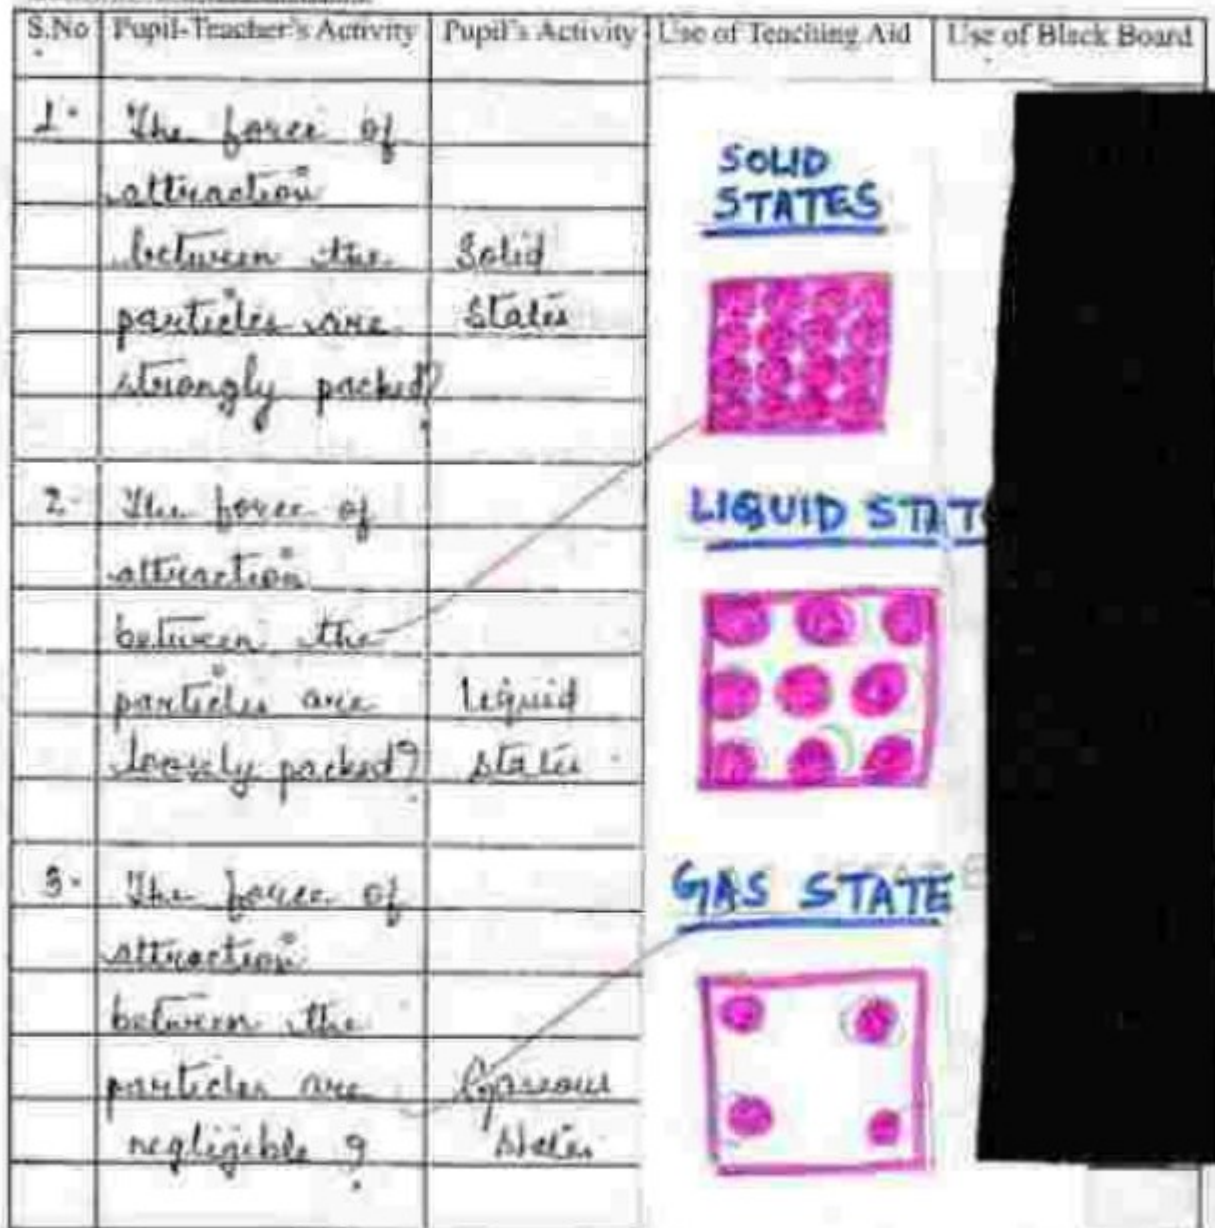 S.No Pupil-Teacher's Activity Pupil's Activity Use of Teaching Aid Use of Black Board
1. The force of
attraction
between the
particles are
strongly packed?
Solid
States
SOLID
STATES
2. The force of
attraction
between the
particles are
loosely packed?
Liquid
states
LIQUID STATE
3. The force of
attraction
between the
particles are
negligible ?
Gaseous
states
GAS STATE